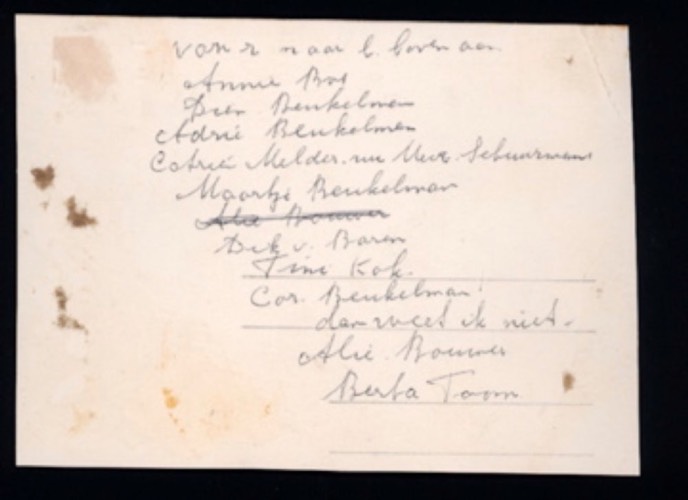 van r naar l. boven aan
Annie Bos
Dien Beukelman
Adrie Beukelman
Catrien Melder. nu Mevr. Schuurmans
Maartje Beukelman
Alie Bouwer
Dik v. Baren
Tini Kok.
Cor. Beukelman.
dan weet ik niet.
Alie. Bouwer
Berta Toom